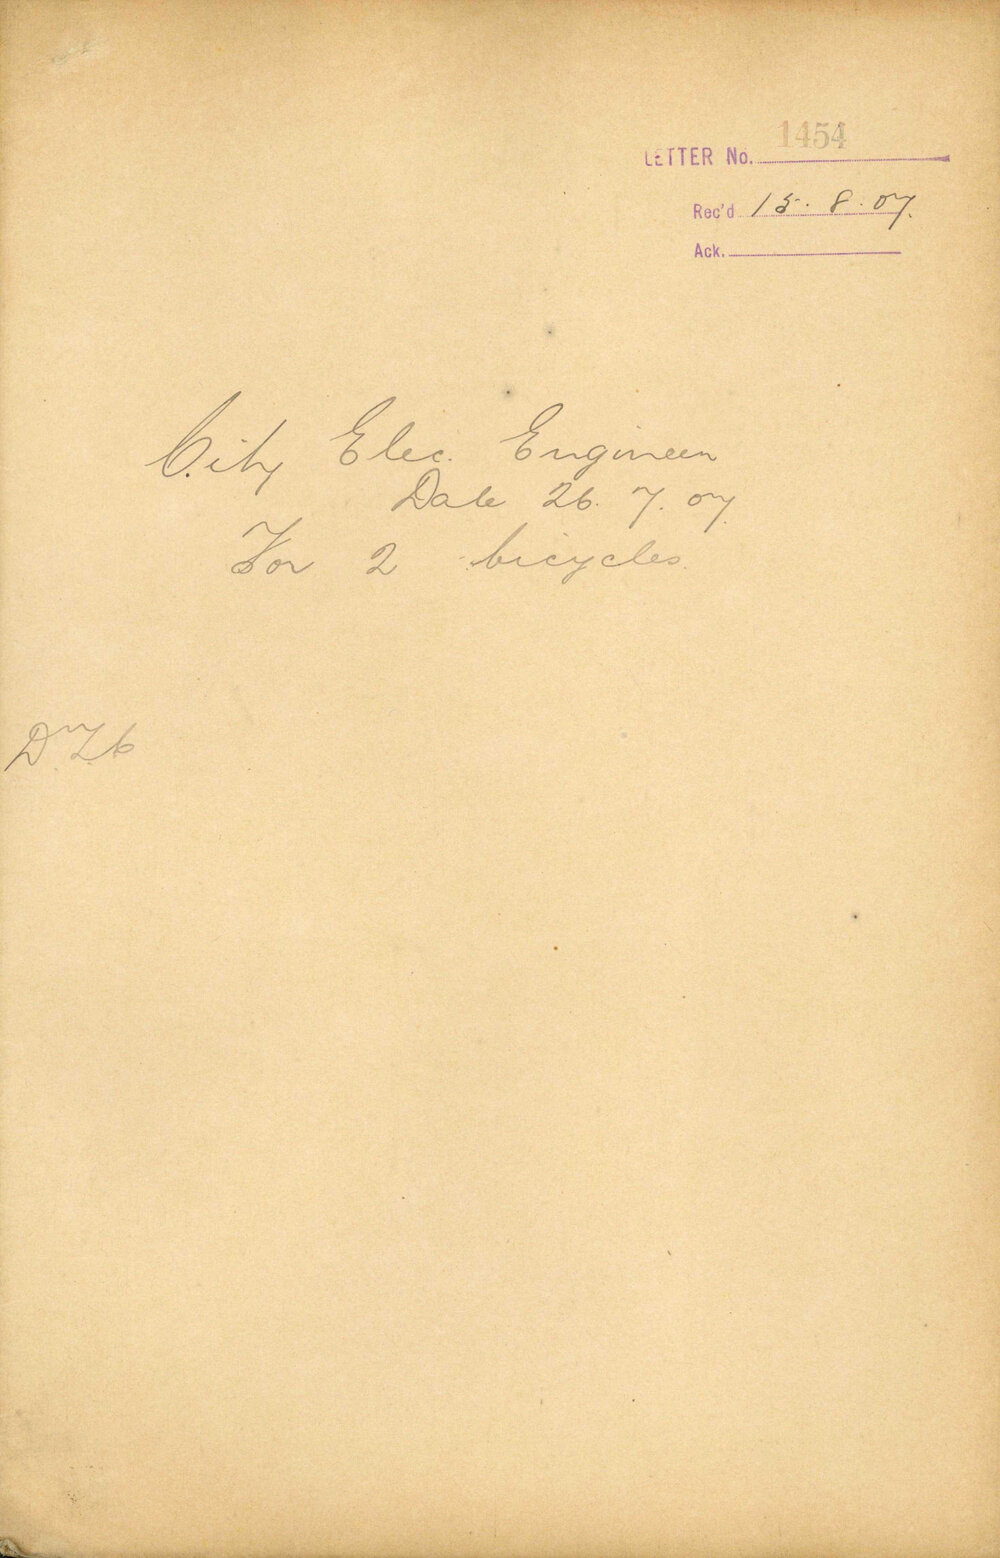 1454
LETTER No.
Rec'd 15.8.07.
Ack.
City Elec. Engineer
Date 26.7.07.
For 2 bicycles.